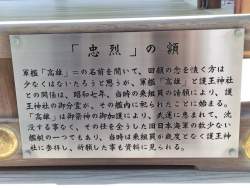 「忠烈」の額
軍艦「高雄」この名前を聞いて、回顧の念を懐く方は
少なくはないだろうと思うが、軍艦「高雄」と護王神社
との関係は、昭和七年、当時の乗組員の請願により、護
王神社の御分霊が、その艦内に祀られたことに始まる。
「高雄」は御祭神の御加護により、武運に恵まれて、沈
没する事なく、その任を全うした旧日本海軍の数少ない
艦艇の一つでもあり、当時は乗組員が幾度となく護王神
社に参拝し、祈願した事も資料に見られる。